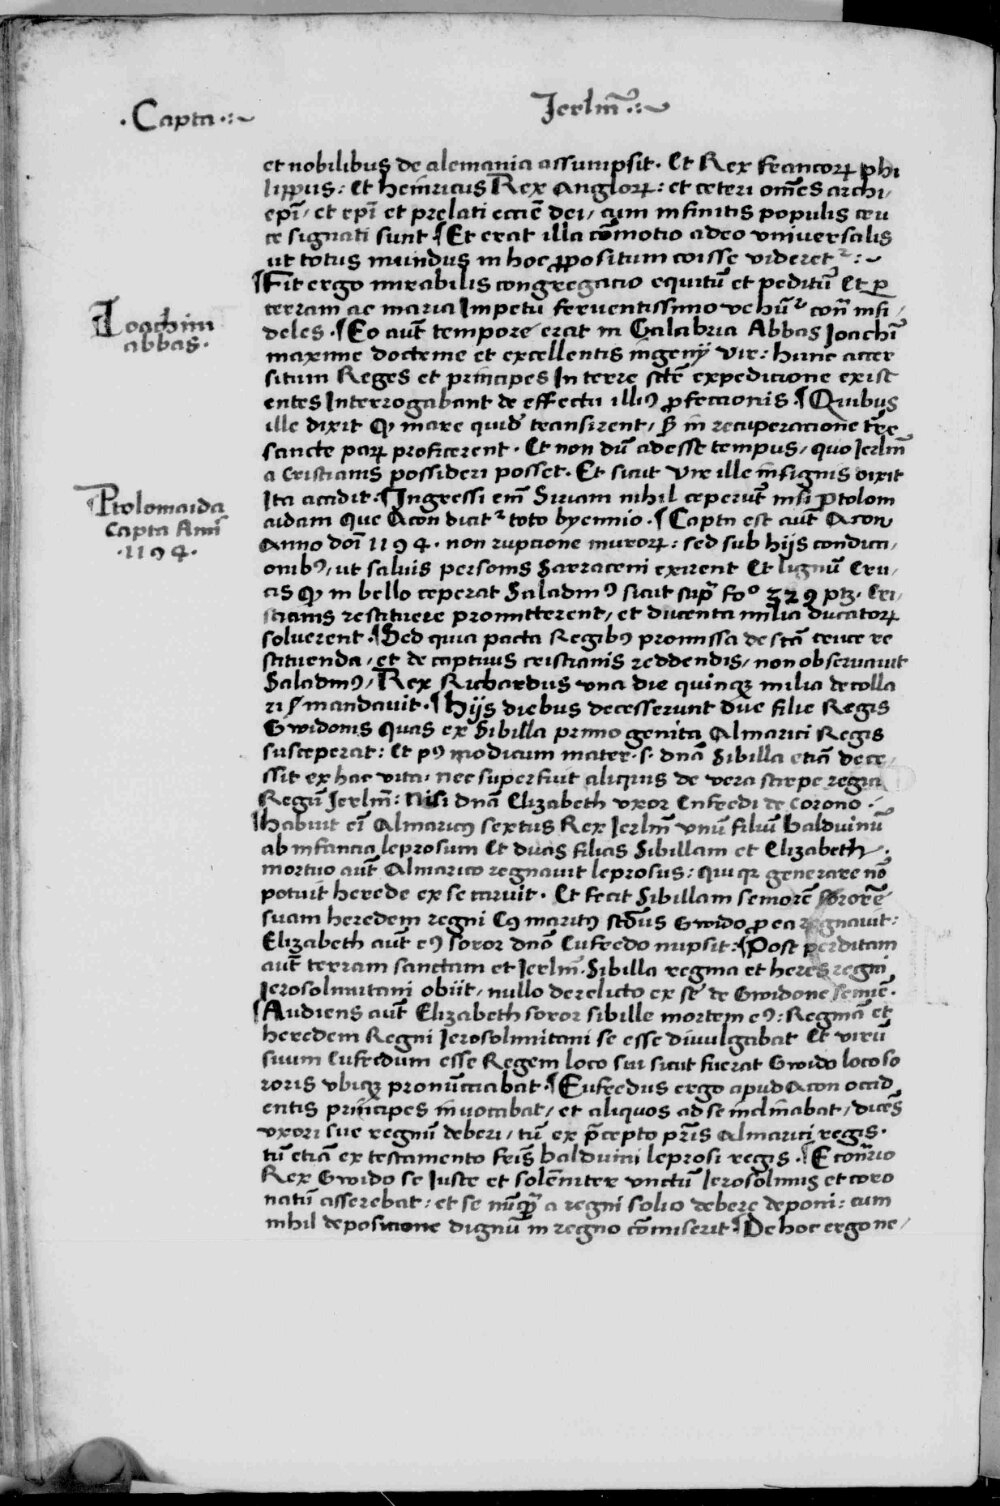 ·Capta·:~
Jerlm̄·:~
et nobilibus de alemania assumpsit· Et Rex francorꝝ phi
lippus: Et heinricus Rex Anglorꝝ: et ceteri om̄es archi,
ep̄i, et ep̄i et prelati eccīe dei, cum infinitis populis cru
ce signati sunt ¶Et erat illa cōmotio adeo universalis
ut totus mundus in hoc ꝓpositum coisse videretᷣ:~
¶Fit ergo mirabilis congregacio equitū et peditū Et ꝑ
terram ac maria Impetu ferventissimo vehūtᷣ con̄ infi,
Joachim
abbas·
deles· ¶Eo aut̄ tempore erat in Calabria Abbas Joachī
maxime doctrine et excellentis ingenij vir: hunc accer
situm Reges et principes In terre sctē expedicione exist
entes Interrogabant de effectu illiꝰ ꝓfectionis· ¶Quibus
ille dixit ꝙ mare quid̄ transirent, sꝫ in recuperacione trē
sancte parꝝ proficerent· Et non dū adesse tempus, quo Jerlm̄
a cristianis possideri posset· Et sicut vir ille insignis dixit
Ptolomaida
capta Anni
·1194·
Ita accidit· ¶Ingressi em̄ Siriam nihil ceperūt nisi ptolom
aidam que Acon dicatᷣ toto byennio· ¶Capta est aut̄ Acon
Anno dom̄i 1194· non rupcione murorꝝ: sed sub hijs condici,
onibꝰ, ut salvis personis Sarraceni exirent Et lignū Cru,
cis ꝙ in bello ceperat Saladinꝰ sicut sup̄ foº 329 ptꝫ· Cri,
stianis restituere promitterent, et ducenta milia ducatorꝝ
solverent· ¶Sed quia pacta Regibꝰ promissa de sctā cruce re
stituenda, et de captivis cristianis reddendis, non observavit
Saladinꝰ, Rex Richardus una die quinqꝫ milia decolla
ri mandavit· ¶hijs diebus decesserunt due filie Regis
Gwidonis quas ex Sibilla primogenita Almarici Regis
susceperat: Et pꝰ modicum mater·s· dnā Sibilla etiā dece,
ssit ex hac vita, nec superfuit aliquis de vera stirpe regia
Regū Jerlm̄: Nisi dnā Elizabeth vxor Enfredi de corono·:
¶habuit ei Almaricꝰ sextus Rex Jerlm̄ vnū filiū balduinū
ab infancia leprosum Et duas filias Sibillam et Elizabeth,
mortuo aut̄ Almarico regnavit leprosus: qui qꝛ generare nō
potuit herede ex se caruit· Et fecit Sibillam seniorē sororē
suam heredem regni Cꝰ maritꝰ scdūs Gwido ꝓ ea regnavit:
Elizabeth aut̄ eꝰ soror dnō Eufredo nupsit: ¶Post perditam
aut̄ terram sanctam et Jerlm̄· Sibilla regina et heres regni
Jerosolimitani obijt, nullo derelicto ex se de Gwidone semīe·
¶Audiens aut̄ Elizabeth soror sibille mortem eꝰ: Reginā et
heredem Regni Jerosolimitani se esse divulgabat Et virū
suum Eufredum esse Regem loco sui sicut fuerat Gwido loco so
roris vbiqꝫ pronūciabat· ¶Eufredus ergo apud Acon occid
entis principes invocabat, et aliquos ad se inclinabat, dicēs
vxori sue regnū deberi, tū ex p̄cepto pr̄is Almarici regis·
tū etiā ex testamento fr̄is balduini leprosi regis· ¶E con̄rio
Rex Gwido se iuste et solēniter vnctū Jerosolimis et coro
natū asserebat: et se nūqꝫ a regni solio debere deponi: cum
nihil deposicione dignū in regno cōmiserit ¶De hoc ergo ne,